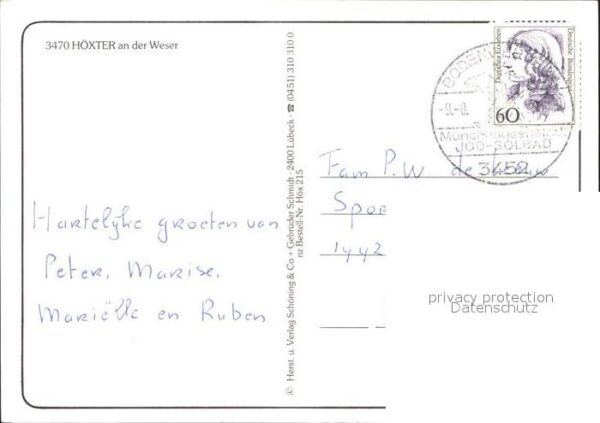 3470 HÖXTER an der Weser
Hartelijke groeten van
Peter, Marise,
Mariëlle en Ruben
© Herst. u. Verlag Schöning & Co + Gebrüder Schmidt · 2400 Lübeck · ☎ (0451) 310 310 0
nz Bestell-Nr. Höx 215
Dorothea Erxleben
Deutsche Bundespost
60
BODENW
-9.-8.
Münchhausen
JOD-SOLBAD
3452
Fam P.W. de
Spo
1442
privacy protection
Datenschutz